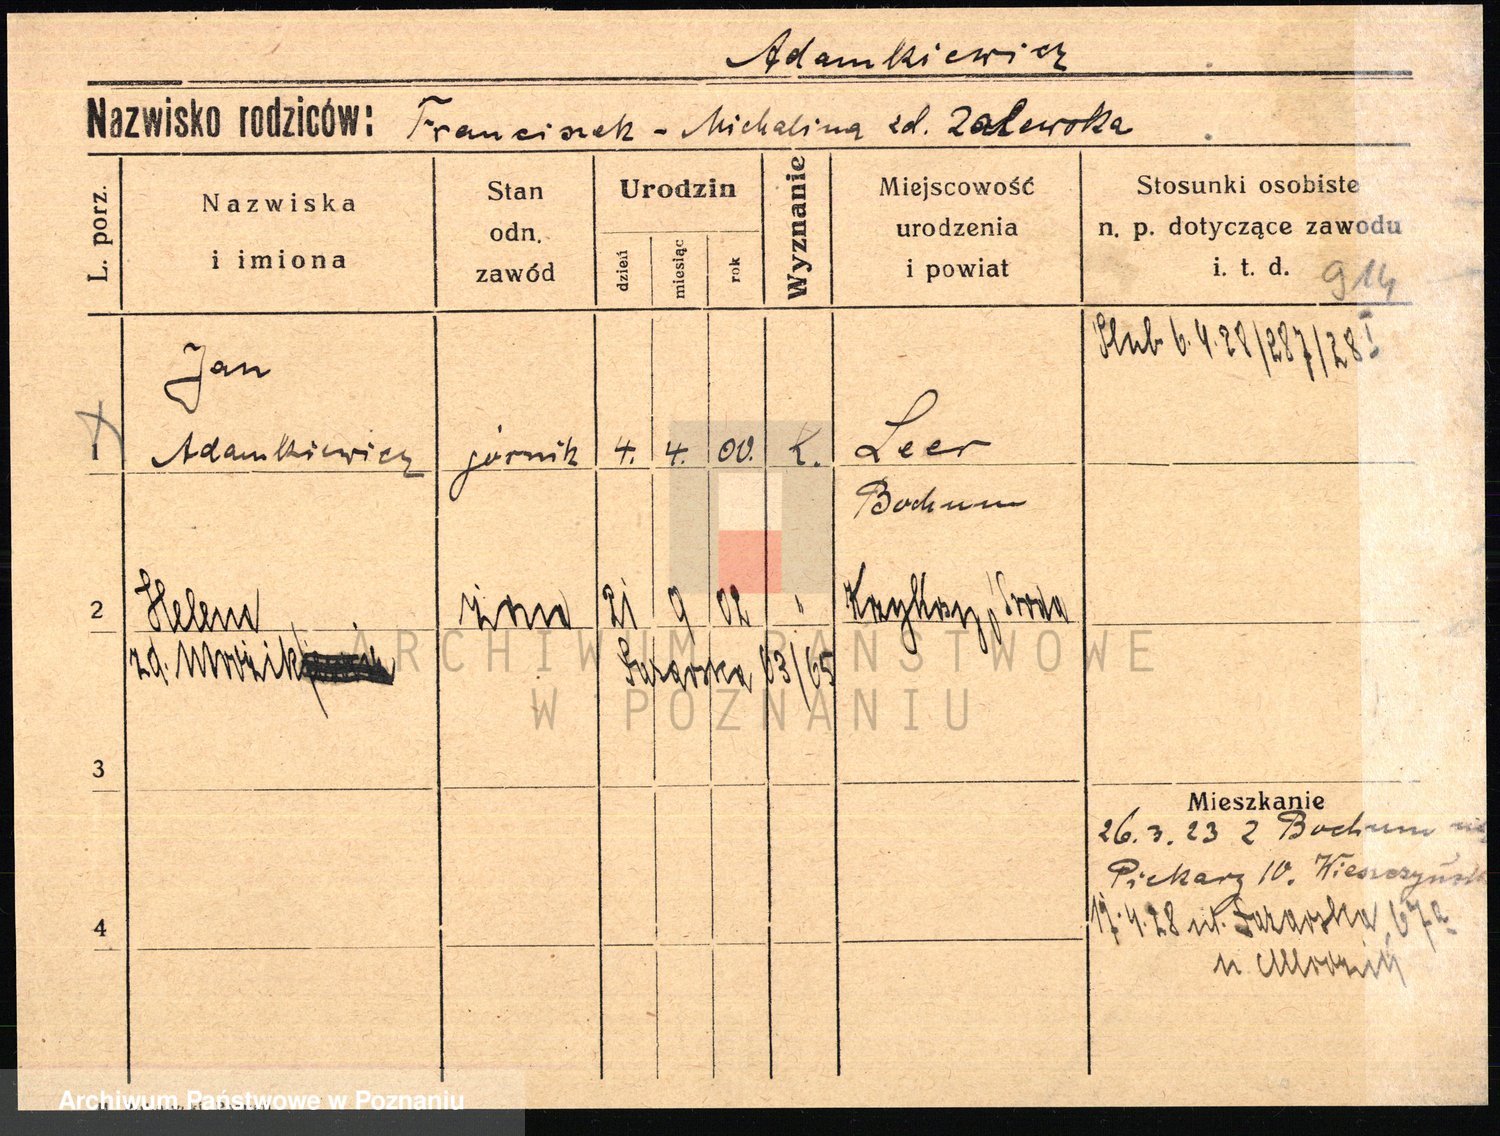 Adamkiewicz
Nazwisko rodziców: Franciszek - Michalina zd. Zalewska
L. porz.
Nazwiska
i imiona
Stan
odn.
zawód
Urodzin
dzień
miesiąc
rok
Wyznanie
Miejscowość
urodzenia
i powiat
Stosunki osobiste
n. p. dotyczące zawodu
i. t. d.
914
Ślub 6.4.28/287/28 I
Jan
1 Adamkiewicz górnik 4. 4. 00. K. Leer
Bochum
2 Helena żona 21 9 02 " Środa
zd.
63/65
3
Mieszkanie
26.3.23 z Bochum
Piekary 10.
4
17.4.28 ul. 67a
u
ARCHIWUM PAŃSTWOWE
W POZNANIU
Archiwum Państwowe w Poznaniu